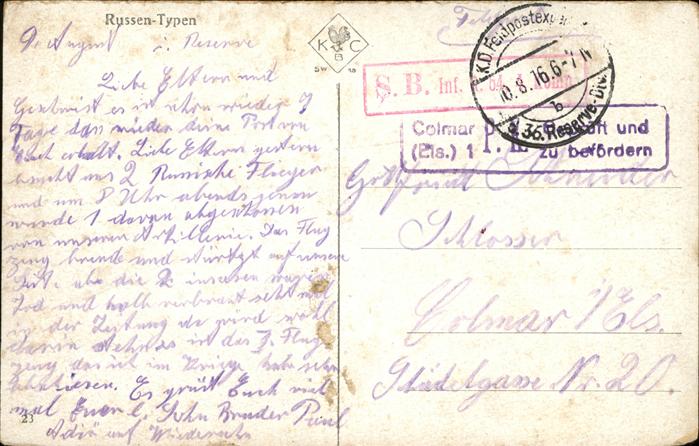 Russen-Typen
K C
B
9. August i. Reserve
Liebe Eltern und
Geschwister es ist schon wieder 7
Tage das wieder deine Post von
Euch erhalt. Liebe Eltern gestern
2 Rusische Flieger
und um 8 Uhr abends
wurde 1 davon abgeschossen
von unserer Artillerie. Das Flug
zeug brende und stürtzt auf unsere
Seit. aber die 2 insasen waren
Tod und halb verbrant seht mal
in der Zeitung da wird wohl
darin stehn es ist das 7. Flug
zeug das ich im Kriege habe sehn
Es grüst Euch viel
mal Euer l. Sohn Bruder Paul
Adiö auf Wiedersehn
23
K.D. Feldpostexp.
10.8.16. 6-7 N
b
d. 36. Reserve-Div.
S. B. Inf.
Colmar und
(Els.) 1 zu befördern
Gottfried Schneider
Schlosser
Colmar i/Els.
Städelgasse Nr. 20.